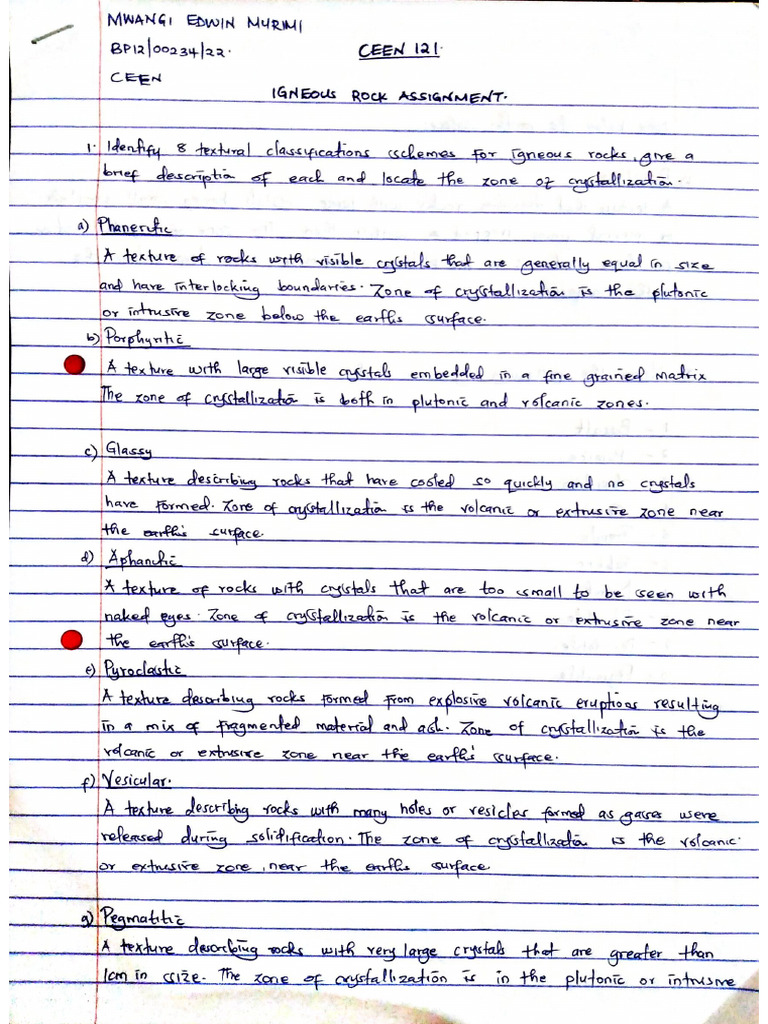 MWANGI EDWIN MURIMI
BP12/00234/22.
CEEN 121.
CEEN
IGNEOUS ROCK ASSIGNMENT.
1. Identify 8 textural classifications schemes for igneous rocks, give a
brief description of each and locate the zone of crystallization.
a) Phaneritic
A texture of rocks with visible crystals that are generally equal in size
and have interlocking boundaries. Zone of crystallization is the plutonic
or intrusive zone below the earth's surface.
b) Porphyritic
A texture with large visible crystals embedded in a fine grained matrix
The zone of crystallization is both in plutonic and volcanic zones.
c) Glassy
A texture describing rocks that have cooled so quickly and no crystals
have formed. Zone of crystallization is the volcanic or extrusive zone near
the earth's surface.
d) Aphanitic
A texture of rocks with crystals that are too small to be seen with
naked eyes. Zone of crystallization is the volcanic or extrusive zone near
the earth's surface.
e) Pyroclastic
A texture describing rocks formed from explosive volcanic eruptions resulting
in a mix of fragmented material and ash. Zone of crystallization is the
volcanic or extrusive zone near the earth's surface.
f) Vesicular.
A texture describing rocks with many holes or vesicles formed as gasses were
released during solidification. The zone of crystallization is the volcanic
or extrusive zone, near the earths surface.
g) Pegmatitic
A texture describing rocks with very large crystals that are greater than
1cm in size. The zone of crystallization is in the plutonic or intrusive